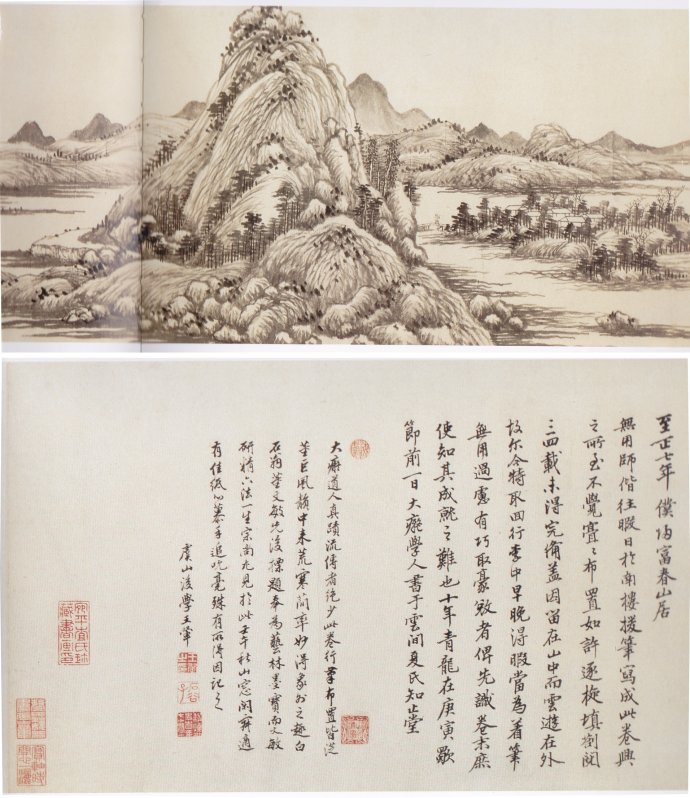 至正七年僕歸富春山居
無用師偕往暇日於南樓援筆寫成此卷興
之所至不覺亹〻布置如許逐旋填劄閱
三四載未得完備蓋因留在山中而雲遊在外
故尔今特取回行李中早晚得暇當為着筆
無用過慮有巧取豪敓者俾先識卷末庶
使知其成就之難也十年青龍在庚寅歜
節前一日大癡學人書于雲間夏氏知止堂
大癡道人真蹟流傳者絕少此卷行筆布置皆從
董巨風韻中来荒寒簡率妙得象外之趣白
石翁董文敏先後標題奉為藝林墨寶而文敏
研精六法一生宗尚尤見於此壬午秋山窓閑適
有佳紙心慕手追吮毫殊有所得因記之
虞山後學王翬